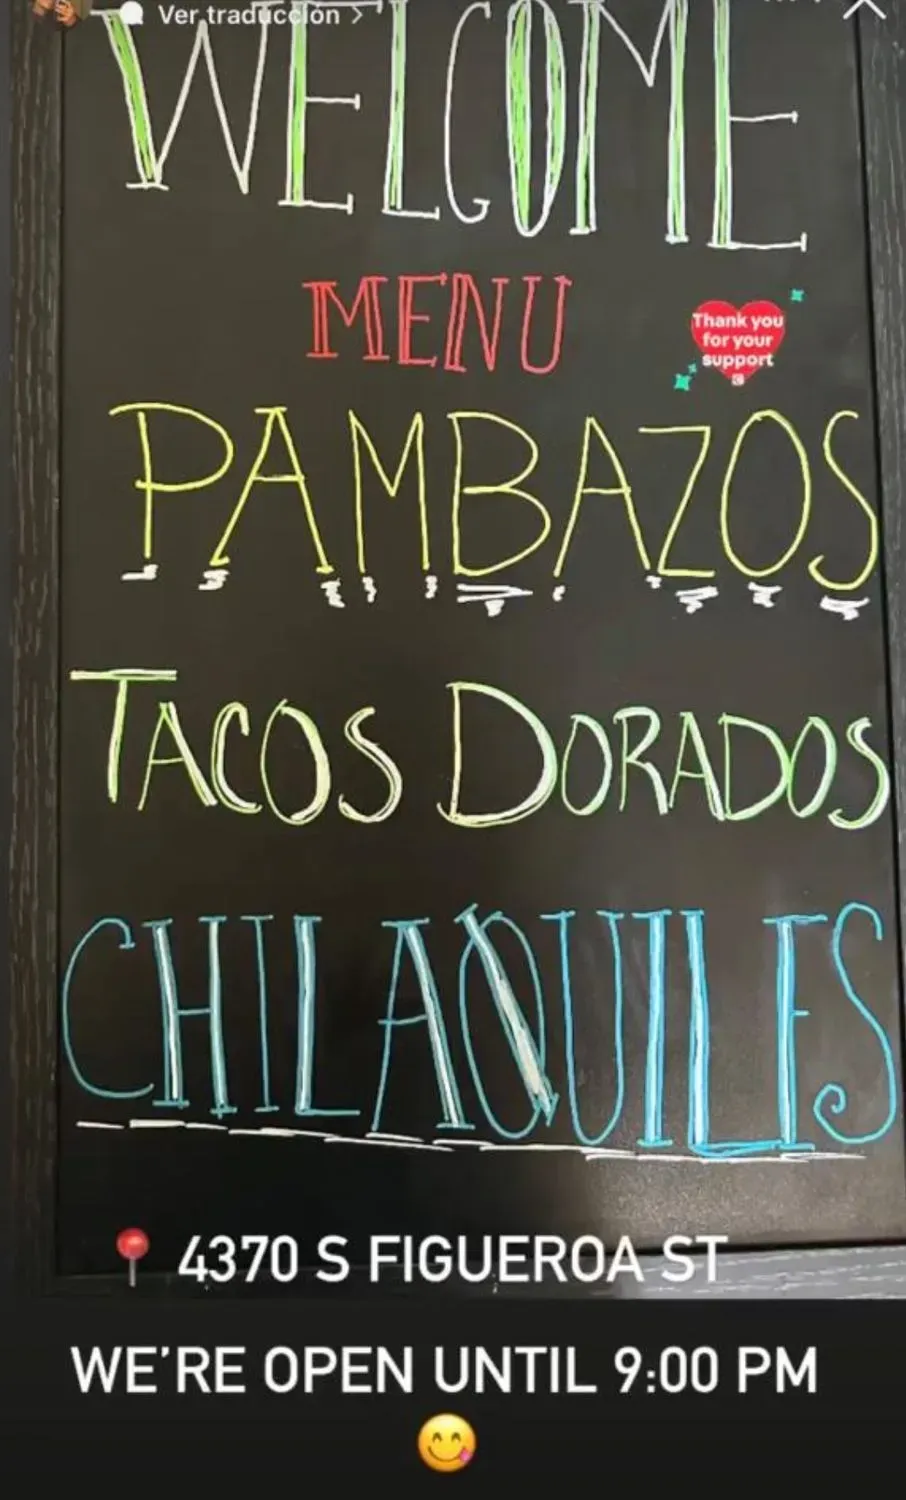 Ver traducción >
WELCOME
MENU
Thank you
for your
support
PAMBAZOS
TACOS DORADOS
CHILAQUILES
4370 S FIGUEROA ST
WE'RE OPEN UNTIL 9:00 PM